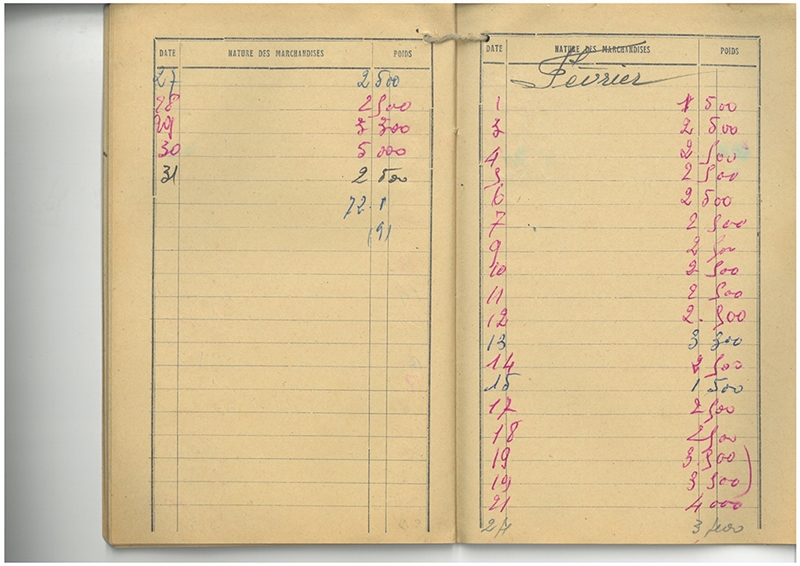 DATE NATURE DES MARCHANDISES POIDS
27 2 500
28 2 500
29 3 300
30 5 000
31 2 500
72.
DATE NATURE DES MARCHANDISES POIDS
Février
1 1 500
3 2 500
4 2 500
5 2 500
6 2 500
7 2 500
9 2 500
10 2 500
11 2 500
12 2.500
13 3 300
14 2 500
15 1 500
17 2 500
18 2 500
19 3.500
19 3 500
21 4 000